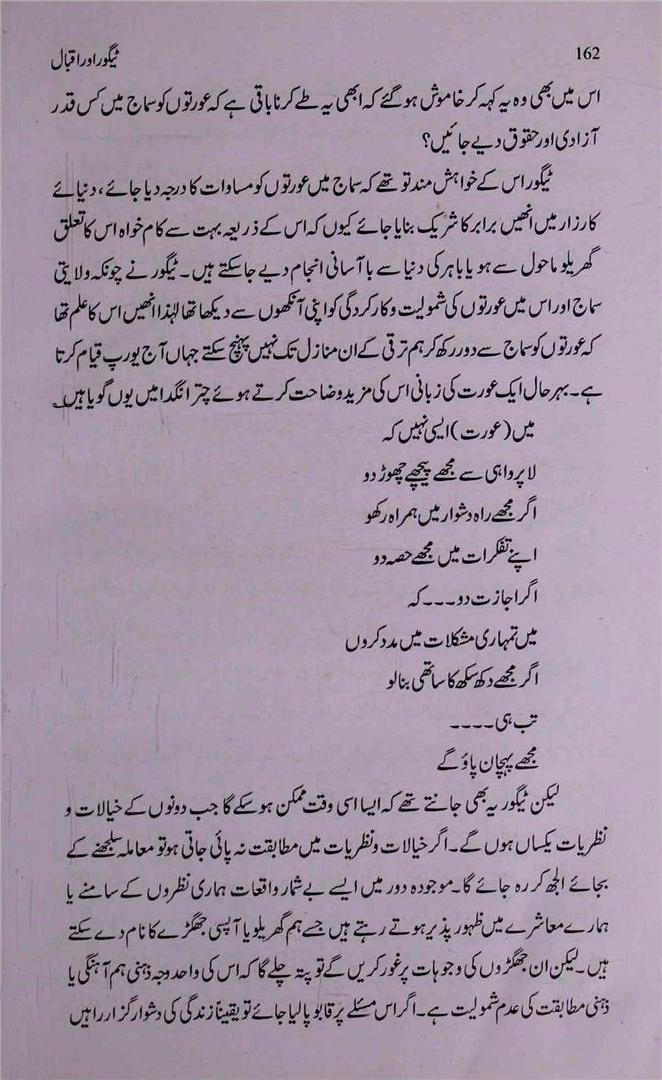 162
ٹیگور اور اقبال
اس میں بھی وہ یہ کہہ کر خاموش ہو گئے کہ ابھی یہ طے کرنا باقی ہے کہ عورتوں کو سماج میں کس قدر
آزادی اور حقوق دیے جائیں؟
ٹیگور اس کے خواہش مند تو تھے کہ سماج میں عورتوں کو مساوات کا درجہ دیا جائے، دنیائے
کارزار میں انھیں برابر کا شریک بنایا جائے کیوں کہ اس کے ذریعہ بہت سے کام خواہ اس کا تعلق
گھریلو ماحول سے ہو یا باہر کی دنیا سے با آسانی انجام دیے جا سکتے ہیں۔ ٹیگور نے چونکہ ولایتی
سماج اور اس میں عورتوں کی شمولیت و کارکردگی کو اپنی آنکھوں سے دیکھا تھا لہٰذا انھیں اس کا علم تھا
کہ عورتوں کو سماج سے دور رکھ کر ہم ترقی کے ان منازل تک نہیں پہنچ سکتے جہاں آج یورپ قیام کرتا
ہے۔ بہر حال ایک عورت کی زبانی اس کی مزید وضاحت کرتے ہوئے چترانگدا میں یوں گویا ہیں۔
میں (عورت) ایسی نہیں کہ
لا پرواہی سے مجھے پیچھے چھوڑ دو
اگر مجھے راہ دشوار میں ہمراہ رکھو
اپنے تفکرات میں مجھے حصہ دو
اگر اجازت دو۔۔۔ کہ
میں تمہاری مشکلات میں مدد کروں
اگر مجھے دکھ سکھ کا ساتھی بنا لو
تب ہی۔۔۔۔
مجھے پہچان پاؤ گے
لیکن ٹیگور یہ بھی جانتے تھے کہ ایسا اسی وقت ممکن ہو سکے گا جب دونوں کے خیالات و
نظریات یکساں ہوں گے۔ اگر خیالات و نظریات میں مطابقت نہ پائی جاتی ہو تو معاملہ سلجھنے کے
بجائے الجھ کر رہ جائے گا۔ موجودہ دور میں ایسے بے شمار واقعات ہماری نظروں کے سامنے یا
ہمارے معاشرے میں ظہور پذیر ہوتے رہتے ہیں جسے ہم گھریلو یا آپسی جھگڑے کا نام دے سکتے
ہیں۔ لیکن ان جھگڑوں کی وجوہات پر غور کریں گے تو پتہ چلے گا کہ اس کی واحد وجہ ذہنی ہم آہنگی یا
ذہنی مطابقت کی عدم شمولیت ہے۔ اگر اس مسئلے پر قابو پا لیا جائے تو یقیناً زندگی کی دشوار گزار راہیں